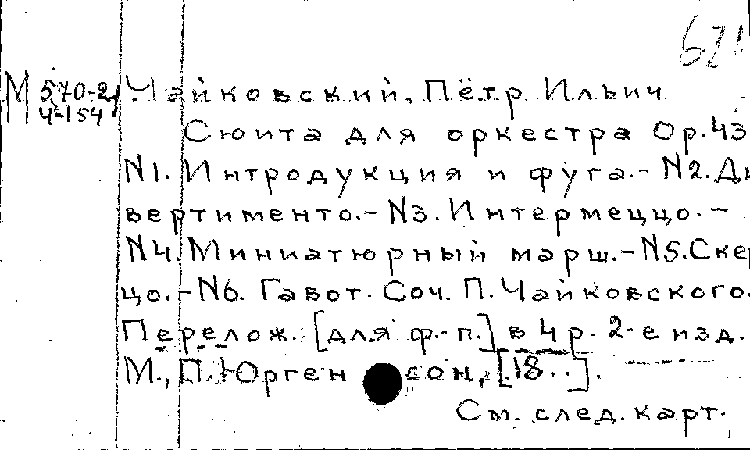 М 570-21 Чайковский, Пётр Ильич
Ч-154
Сюита для оркестра Ор.43
N1. Интродукция и фуга.- N2. Ди
вертименто.- N3. Интермеццо. -
N4. Миниатюрный марш.- N5. Скер
цо.- N6. Гавот. Соч. П. Чайковского.
Перелож. [для ф.-п.] в 4 р. 2-е изд.
М., П. Юргенсон, [18..].
См. след. карт.